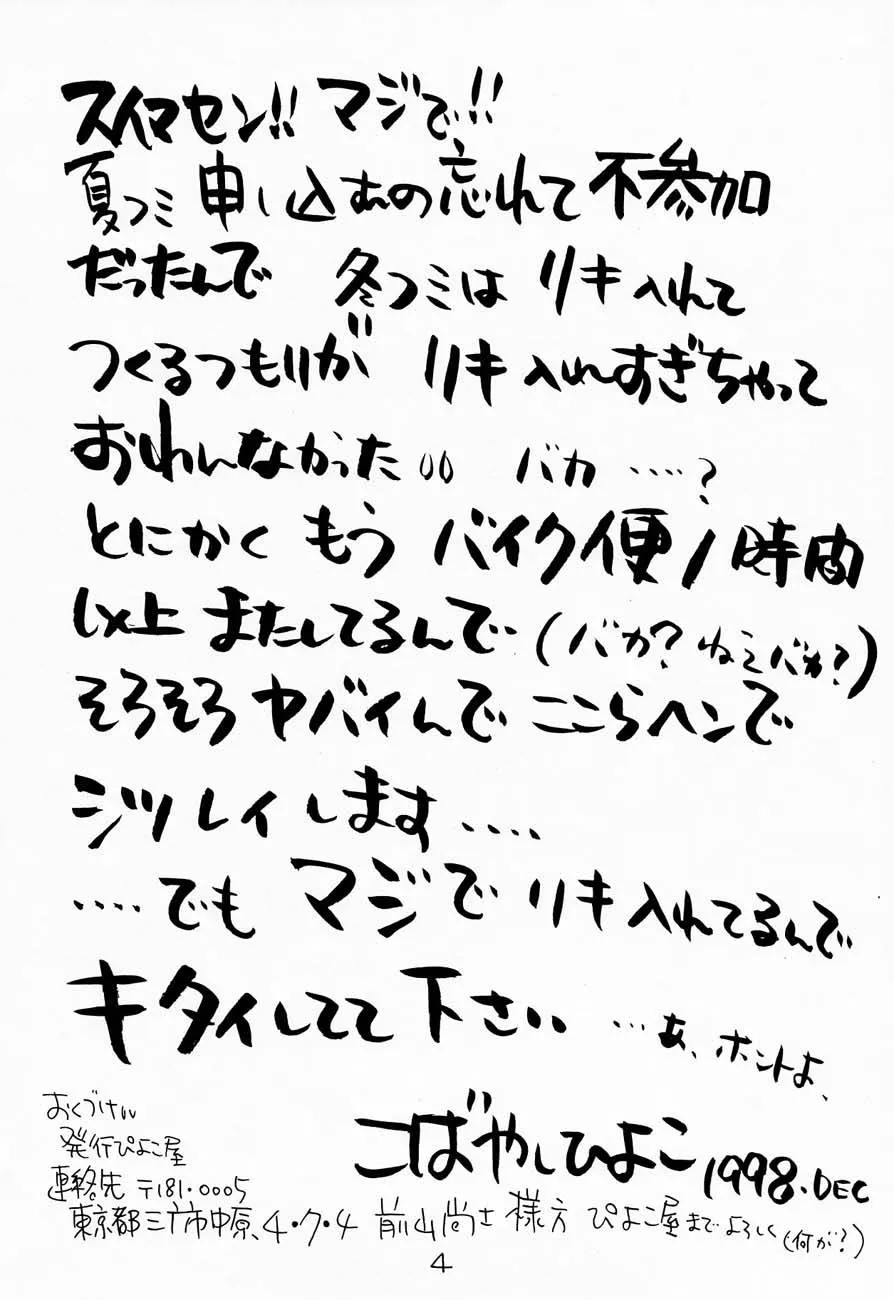 スイマセン!! マジで!!
夏コミ 申し込むの忘れて不参加
だったんで 冬コミは リキ入れて
つくるつもりが リキ入れすぎちゃって
おわんなかった〃 バカ ‥‥?
とにかく もう バイク便1時間
以上 またしてるんで (バカ? ねえバカ?)
そろそろ ヤバイんで ここらヘンで
シツレイします ‥‥
‥‥でも マジで リキ入れてるんで
キタイしてて下さい …あ、ホントよ、
こばやしひよこ 1998.DEC
おくづけ〃
発行ぴよこ屋
連絡先 〒181.0005
東京都三鷹市中原、4・7・4 前山尚士様方 ぴよこ屋まで よろしく(何が?)
4